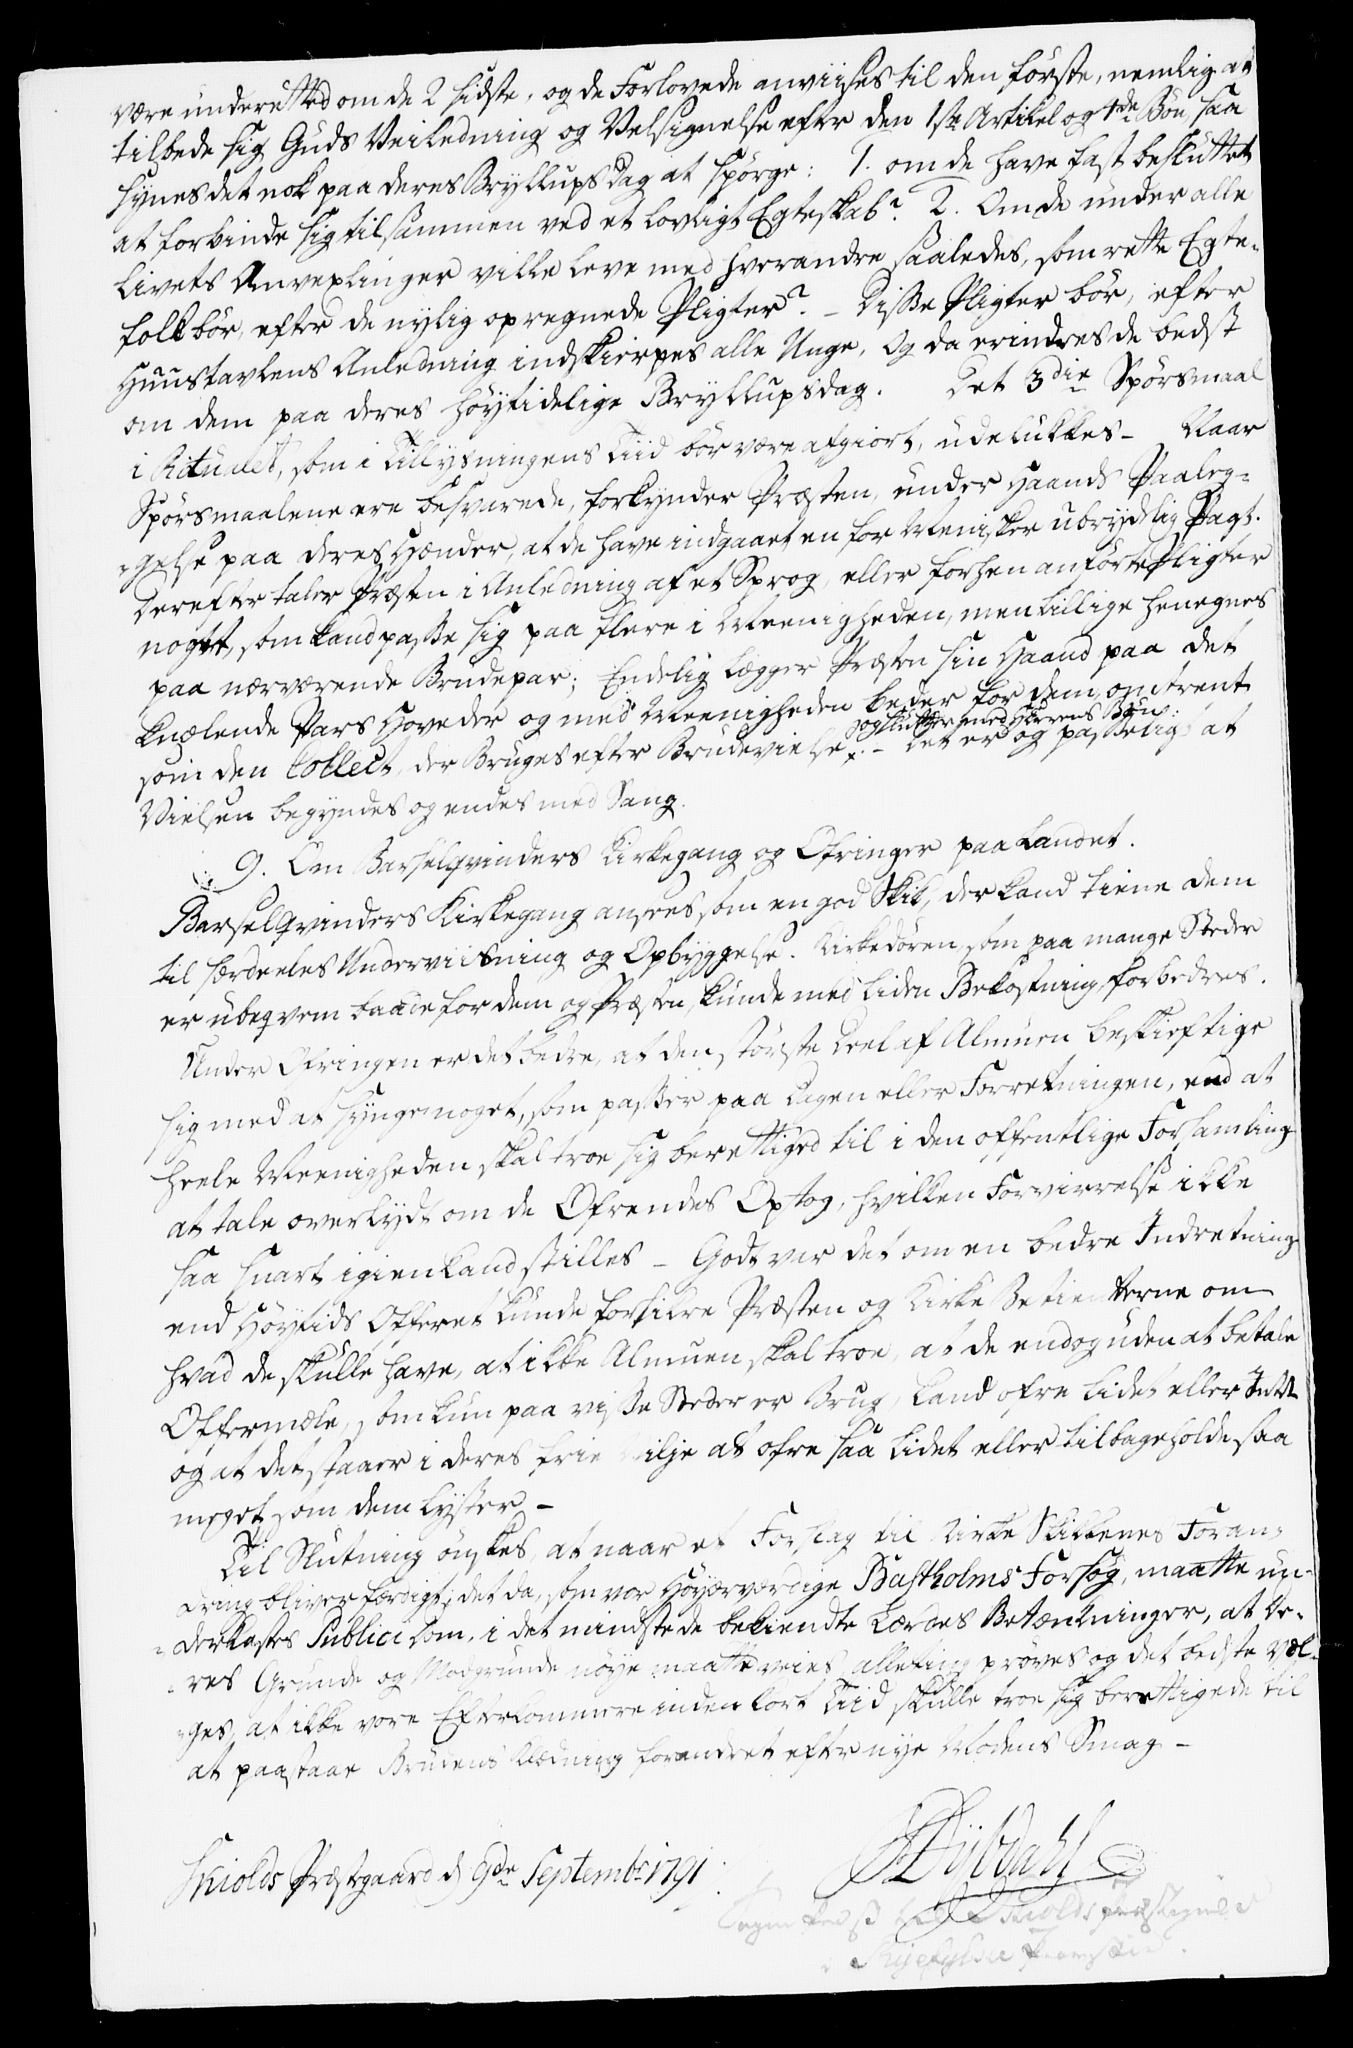 være underetted om de 2 sidste, og de Forlovede anviises til den første, nemlig at
tilbede sig Guds Veiledning og Velsignelse efter den 1ste Artikel og 1de Bøn saa
synes det nok paa deres Bryllups Dag at spørge: 1. om de have fast besluttet
at forbinde sig tilsammen ved et lovligt Egteskab? 2. Om de under alle
Livets Omvexlinger ville leve med hverandre saaledes, som rette Egte-
folk bør, efter de nylig opregnede Pligter? - Disse Pligter bør, efter
Huustavlens Anledning indskierpes alle Unge, og da erindres de bedst
om dem paa deres høytidelige Bryllupsdag. Det 3die Spørsmaal
i Ritualet, som i Tillysningens Tiid bør være afgiort, udelukkes - Naar
Spørsmaalene ere besvarede, forkynder Præsten, under Haands Paaleg-
gelse paa deres Hænder, at de have indgaaet en for Menisker ubrydelig Pagt.
Derefter taler Præsten i Anledning af et Sprog, eller forhen anførte Pligter
noget, som kand passe sig paa flere i Meenigheden, men tillige henegnes
paa nærværende Brudepar; Endelig lægger Præsten sin Haand paa det
knælende Pars Hoveder og med Meenigheden beder for dem, omtrent
og slutter med Herrens Bøn:
som den Collect, der bruges efter Brudevielse - Det er og passelig at
Vielsen begyndes og endes med Sang.
9. Om Barselqvinders Kirkegang og Ofringer paa Landet.
Barselqvinders Kirkegang ansees som en god Skik, der kand tiene dem
til særdeeles Underviisning og Opbyggelse. Kirkedøren, som paa mange Steder
er ubeqvem baade for dem og Præsten, kunde med liden Bekostning forbedres.
Under Ofringen er det bedre, at den største Deel af Almuen beskieftige
sig med at synge noget, som passer paa Dagen eller Forretningen, end at
heele Meenigheden skal troe sig berettiged til i den offentlige Forsamling
at tale overlydt om de Ofrendes Optog, hvilken Forvirrelse ikke
saa snart igien kand stilles - Godt var det om en bedre Indretning
end Høytids Offeret kunde forsikre Præsten og Kirke Betienterne om
hvad de skulle have, at ikke Almuen skal troe, at de endog uden at betale
Offermæle, som kun paa visse Steder er Brug, kand ofre lidet eller Intet
og at det staaer i deres frie Vilje at ofre saa lidet eller tilbageholde saa
meget som dem lyster -
Til Slutning ønskes, at naar et Forslag til Kirke Skikkenes Foran-
dring bliver færdigt, det da, som vor Høyærværdige Bastholms Forsøg, maatte un-
derkastes Publici Dom, i det mindste de bekiendte Lærdes Betænkninger, at de-
res Grunde og Modgrunde nøye maatte veies alleting prøves og det bedste væl-
ges, at ikke vore Efterkommere inden kort Tiid skulle troe sig berettigede til
at paastaae Brudens Klædning forandret efter nye Modens Smag -
Skiolds Præstgaard d 9de Septembr 1791.